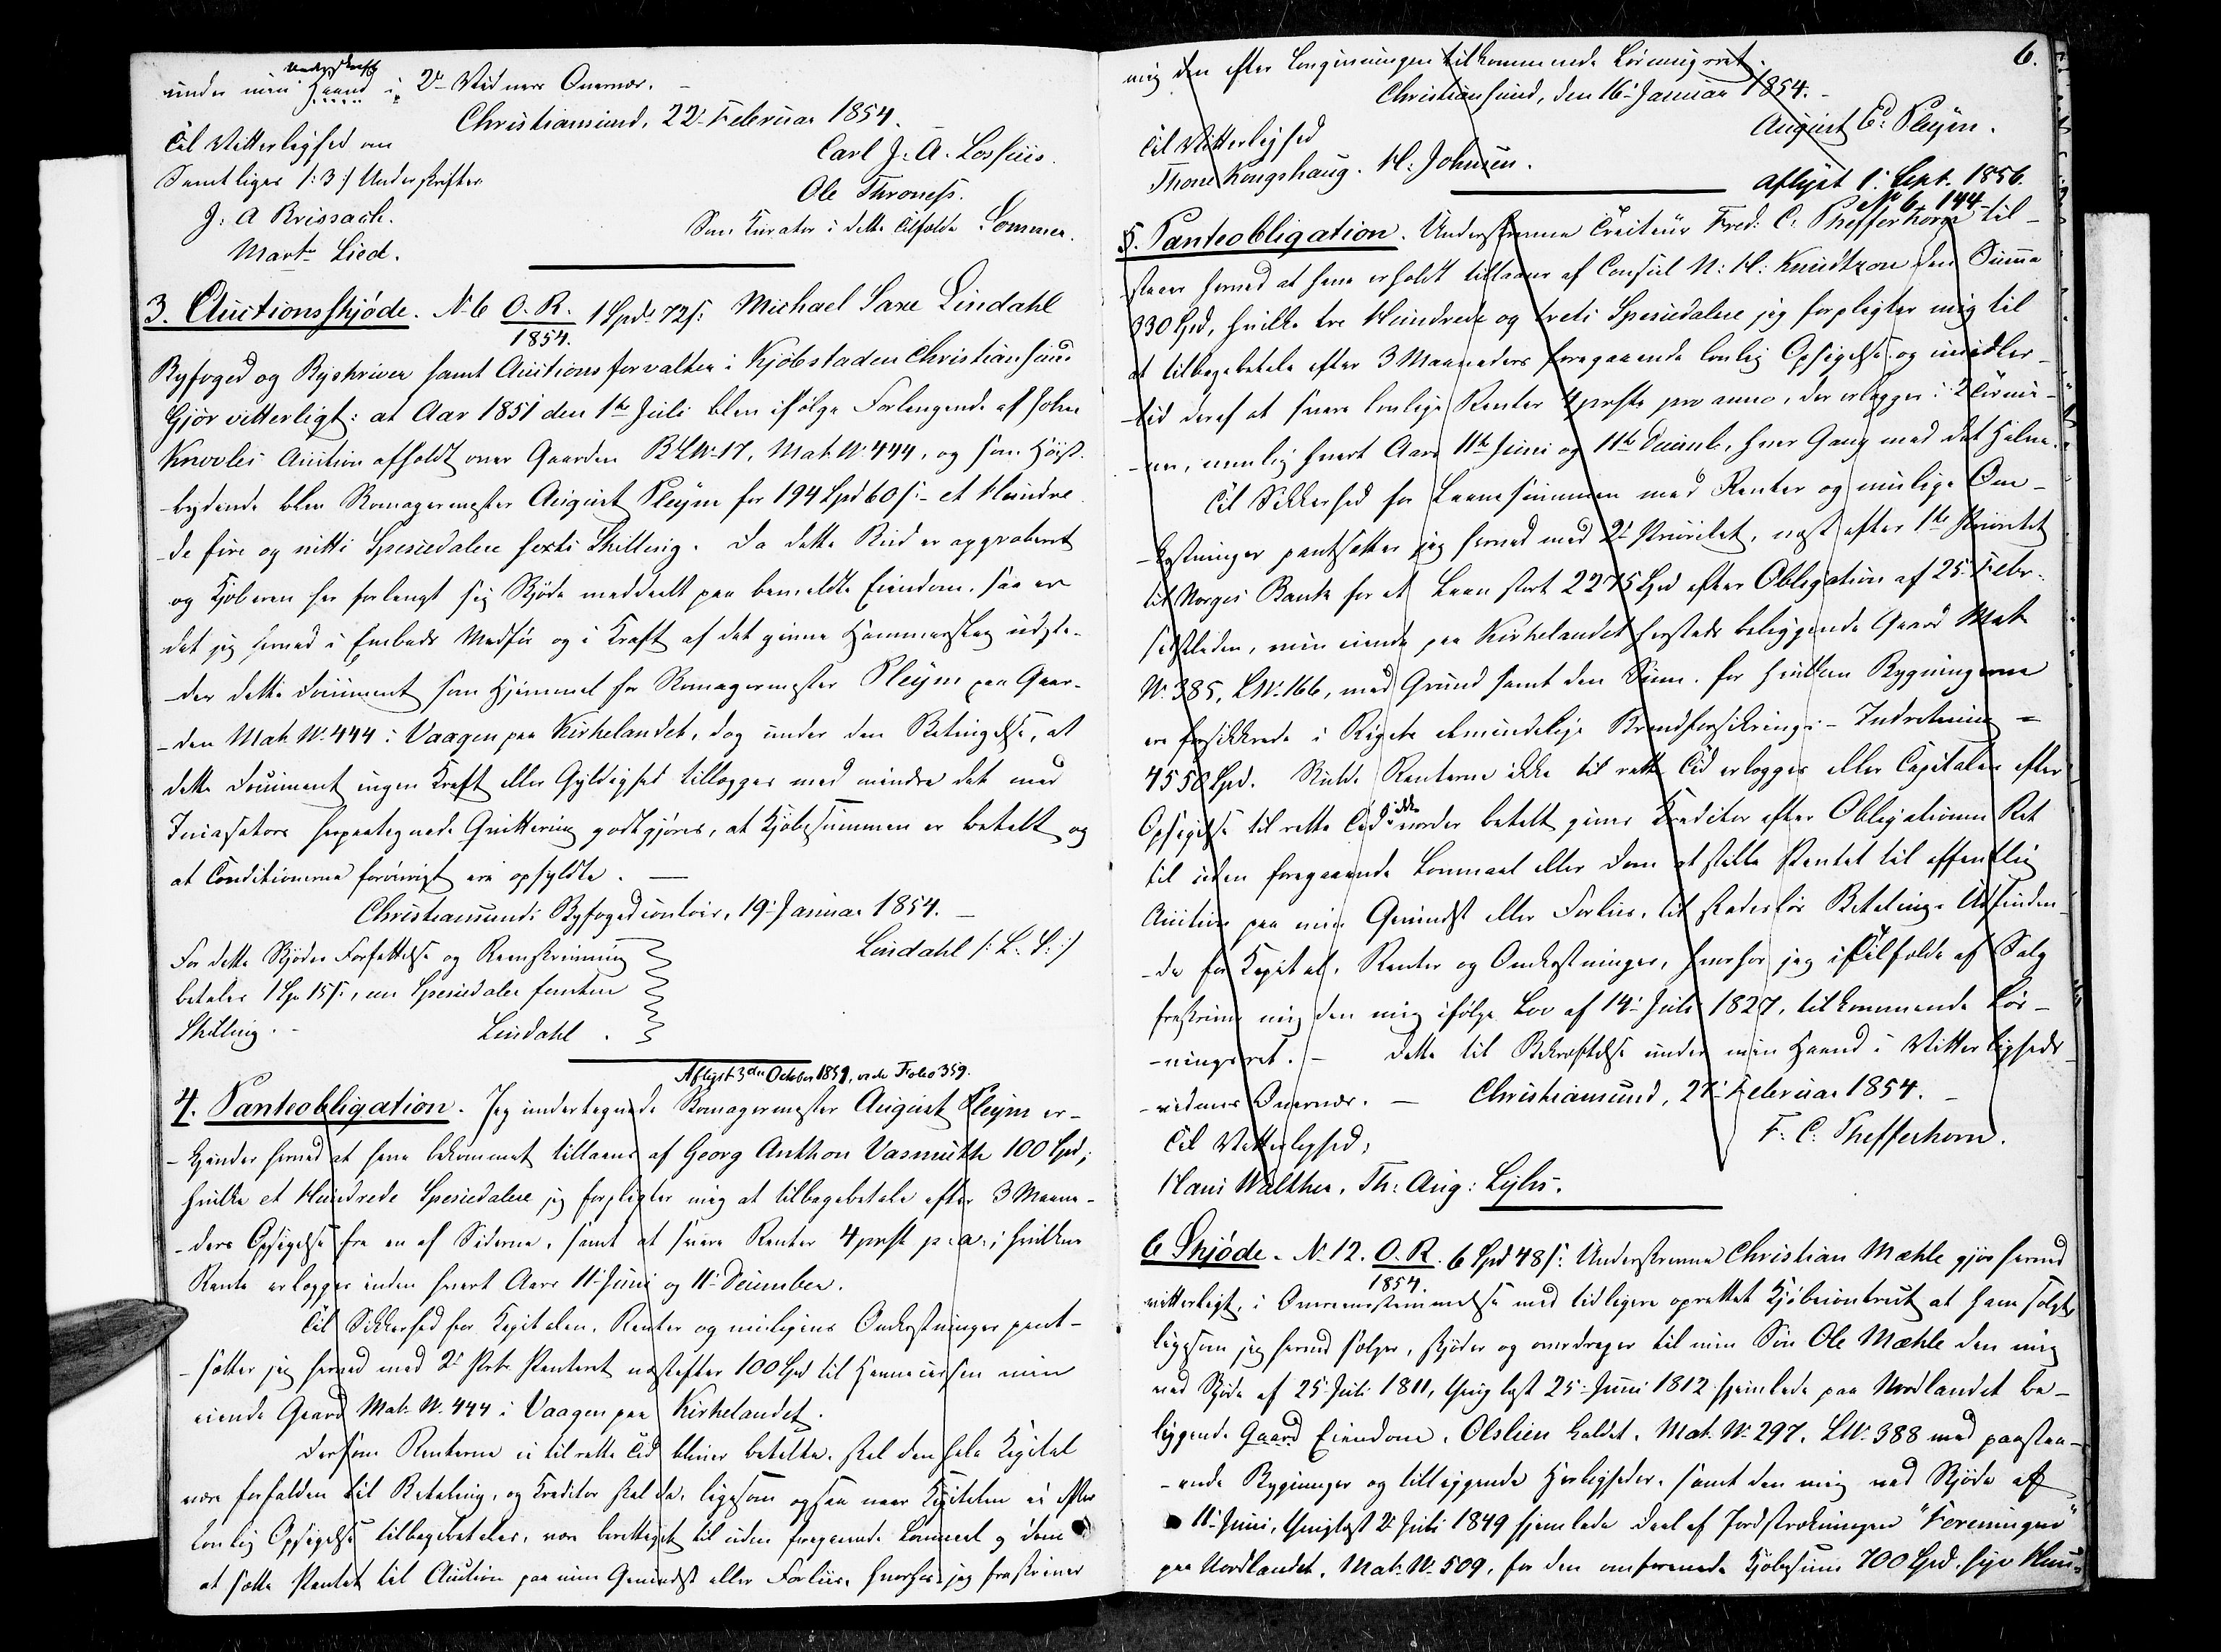 Underskrift
under min Haand i 2de Vidners Overvær. –
Christiansund, 22de Februar 1854.
Til Vitterlighed om
Carl J: A. Lossius.
Samtliges /:3:/ Underskrifter
Ole Throness.
J: A Brissach.
Som Curator i dette Tilfælde Sommer.
Mart. Lied.
3. Auctionsskjøde. No 6 O. R. 1854. 1 Spd 72 s: Michael Saxe Lindahl
Byfoged og Byskriver samt Auctionsforvalter i Kjøbstaden Christiansund
Gjør vitterligt: at Aar 1851 den 1ste Juli blev ifølge Forlangende af John
Knowles Auction afholdt over Gaarden LN. 17, Mat. N. 444, og som Høist-
-bydende blev Romagermester August Pleym for 194 Spd 60 s: – et Hundre-
-de fire og nitti Speciedaler sexti Skilling. Da dette Bud er approberet
og Kjøberen har forlangt sig Skjøde meddeelt paa bemeldte Eiendom, saa er
det jeg herved i Embeds Medfør og i Kraft af det givne Hammerslag udste-
-der dette Document som Hjemmel for Romagermester Pleym paa Gaar-
-den Mat. N. 444 i Vaagen paa Kirkelandet, dog under den Betingelse, at
dette Document ingen Kraft eller Gyldighed tillægges med mindre det med
Incasators herpaategnede Qvittering godtgjøres, at Kjøbesummen er betalt og
at Conditionerne forøvrigt ere opfyldte. —
Christiansunds Byfogedcontoir, 19de Januar 1854. –
Lindahl /: L. S: :/
For dette Skjødes Forfattelse og Reenskrivning
betales 1 Sp. 15 s:, een Speciedaler femten
Skilling. – Lindahl.
Aflyst 3die October 1859, vide Folio 359.
4. Panteobligation. Jeg undertegnede Romagermester August Pleym er-
-kjender herved at have bekommet tillaans af Georg Anthon Vasmuth 100 Spd,
hvilke et Hundrede Speciedaler jeg forpligter mig at tilbagebetale efter 3 Maane-
-ders Opsigelse fra en af Siderne, samt at svare Renter 4 prct p: a:; hvilken
Rente erlægges inden hvert Aars 11te Juni og 11te December.
Til Sikkerhed for Kapitalen, Renter og muligens Omkostninger pant-
-sætter jeg herved med 2den Prts Panteret næstefter 100 Spd til min
eiende Gaard Mat. N. 444 i Vaagen paa Kirkelandet.
Dersom Renterne ei til rette Tid bliver betalte, skal den hele Kapital
være forfalden til Betaling, og Kreditor skal da, ligesom ogsaa naar Kapitalen ei efter
lovlig Opsigelse tilbagebetales, være berettiget til uden foregaaende Lovmaal og Dom
at sætte Pantet til Auction paa min Gevindst eller Forliis, hvorhos jeg fraskriver
6.
mig den efter Lovgivningen tilkommende Løsningsret.
Christiansund, den 16de Januar 1854. –
August Ed: Pleym.
Til Vitterlighed
Thore Kongshaug. H: Johnsen.
Aflyst 1. Sept. 1856.
No 6 – 144
5. Panteobligation. Underskrevne Traiteur Fred: C: Pfefferkorn til-
-staaer herved at have erholdt tillaans af Consul N: H: Knudtzon den Summa
330 Spd, hvilke tre Hundrede og treti Speciedaler jeg forpligter mig til
at tilbagebetale efter 3 Maaneders foregaaende lovlig Opsigelse og imidler-
-tid deraf at svare lovlige Renter 4 prcto pro anno, der erlægges i 2 Termi-
-ner, nemlig hvert Aars 11te Juni og 11te Decemb., hver Gang med det Halve.
Til Sikkerhed for Laanesummen med Renter og mulige Om-
-kostninger pantsætter jeg herved med 2den Prioritet, næst efter 1ste Prioritet
til Norges Bank for et Laan stort 2275 Spd efter Obligation af 25. Febr.
sidstleden, min eiende paa Kirkelandet hersteds beliggende Gaard Mat.
N. 385, LN. 166, med Grund samt den Sum, for hvilken Bygningerne
ere forsikkrede i Rigets almindelige Brandforsikrings-Indretning –
4550 Spd. Skulde Renterne ikke til rette Tid erlægges eller Capitalen efter
Opsigelse til rette Tid ikke vorder betalt, gives Kreditor efter Obligationen Ret
til uden foregaaende Lovmaal eller Dom at stille Pantet til offentlig
Auction paa min Gevindst eller Forliis, til skadesløs Betaling. Udfinden-
-de for Kapital, Renter og Omkostninger, hvorfor jeg i Tilfælde af Salg
fraskriver mig den mig ifølge Lov af 14de Juli 1827, tilkommende Løs-
-ningsret. – Dette til Bekræftelse under min Haand i Vitterligheds-
-vidners Overvær. — Christiansund, 27de Februar 1854. –
F: C: Pfefferkorn.
Til Vitterlighed,
Hans Walther. Th: Aug: Lyhs.
6 Skjøde. No 12. O. R. 1854. 6 Spd 48 s: Underskrevne Christian Mæhle gjør herved
vitterligt, i Overensstemmelse med tidligere oprettet Kjøbecontract at have solgt
ligesom jeg herved sælger, skjøder og overdrager til min Søn Ole Mæhle den mig
ved Skjøde af 25de Juli 1811, thinglæst 25de Juni 1812 hjemlede paa Nordlandet be-
liggende Gaard Eiendom, Olslien kaldet, Mat. No 297. LN. 388 med paastaa-
-ende Bygninger og tilliggende Herligheder, samt den mig ved Skjøde af
11te Juni, thinglæst 2den Juli 1849 hjemlede Deel af Jordstrækningen "Foreningen"
paa Nordlandet, Mat. N. 509, for den omforenede Kjøbesum 700 Spd. syv Hun-